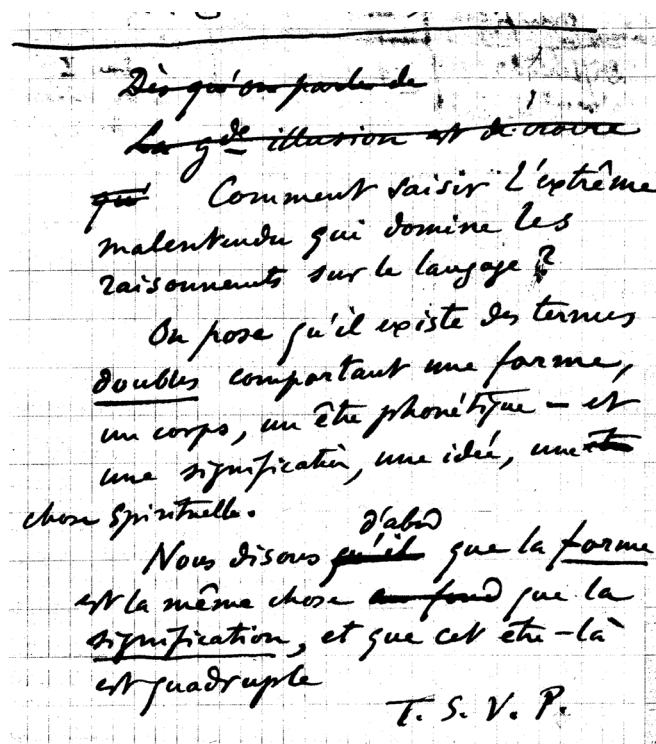 Dès qu'on parle de
La gde illusion est de croire
qu' Comment saisir l'extrême
malentendu qui domine les
raisonnements sur le langage ?
On pose qu'il existe des termes
doubles comportant une forme,
un corps, un être phonétique – et
une signification, une idée, une
chose spirituelle.
d'abord
Nous disons qu'il que la forme
est la même chose au fond que la
signification, et que cet être-là
est quadruple
T. S. V. P.